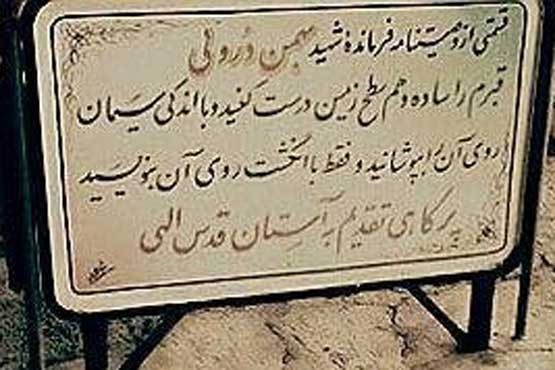 قسمتی از وصیتنامه فرمانده شهید بهمن درولی
قبرم را ساده و هم سطح زمین درست کنید و با اندکی سیمان
روی آن را بپوشانید و فقط با انگشت روی آن بنویسید
پر کاهی تقدیم به آستان قدس الهی